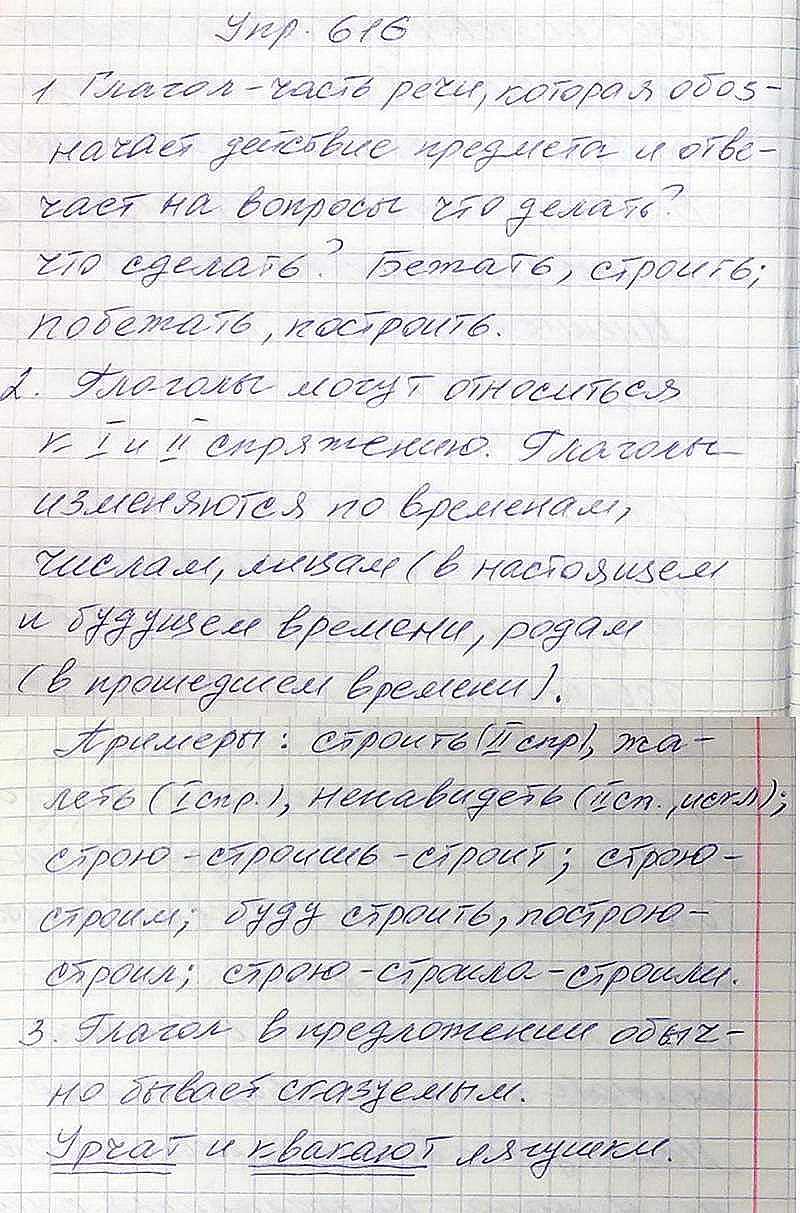 Упр. 616
1 Глагол - часть речи, которая обоз-
начает действие предмета и отве-
чает на вопросы что делать?
что сделать? Бежать, строить;
побежать, построить.
2. Глаголы могут относиться
к I и II спряжению. Глаголы
изменяются по временам,
числам, лицам (в настоящем
и будущем времени, родам
(в прошедшем времени).
Примеры: строить (II спр), жа-
леть (I спр.), ненавидеть (II сп., искл);
строю - строишь - строит; строю -
строим; буду строить, построю -
строил; строю - строила - строили.
3. Глагол в предложении обыч-
но бывает сказуемым.
Урчат и квакают лягушки.